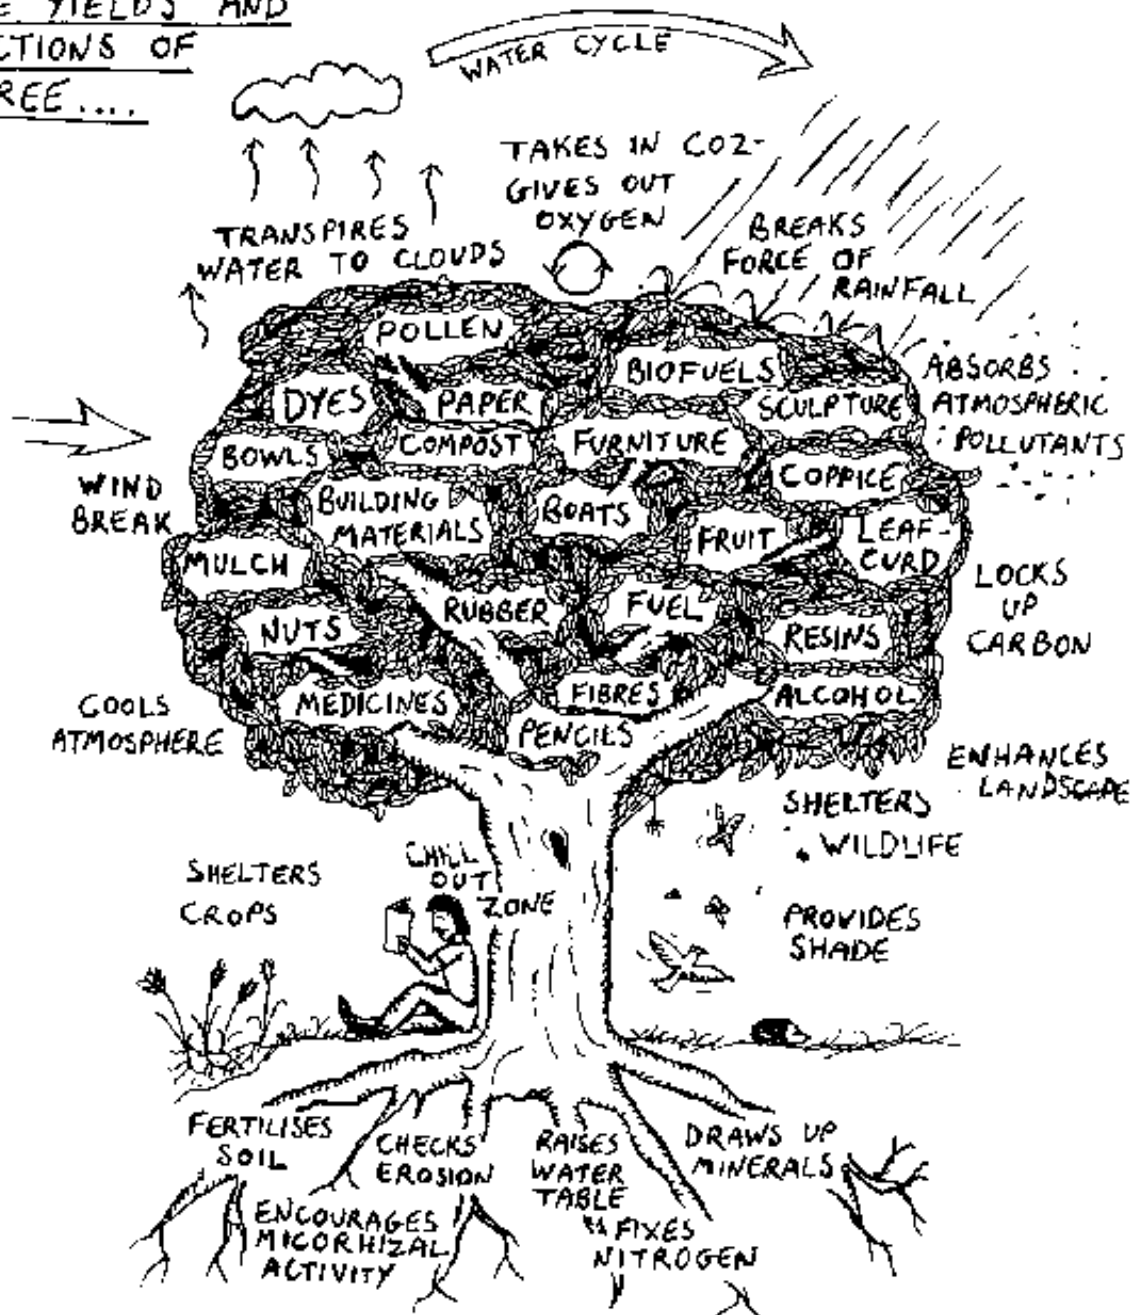 YIELDS AND
OF
....
WATER CYCLE
TAKES IN CO2-
GIVES OUT
OXYGEN
TRANSPIRES
WATER TO CLOUDS
BREAKS
FORCE OF
RAINFALL
POLLEN
BIOFUELS
ABSORBS
ATMOSPHERIC
POLLUTANTS
DYES
PAPER
SCULPTURE
BOWLS
COMPOST
FURNITURE
COPPICE
WIND
BREAK
BUILDING
MATERIALS
BOATS
FRUIT
LEAF-
CURD
MULCH
LOCKS
UP
CARBON
NUTS
RUBBER
FUEL
RESINS
MEDICINES
FIBRES
ALCOHOL
PENCILS
COOLS
ATMOSPHERE
ENHANCES
LANDSCAPE
SHELTERS
WILDLIFE
CHILL
OUT
ZONE
SHELTERS
CROPS
PROVIDES
SHADE
FERTILISES
SOIL
CHECKS
EROSION
RAISES
WATER
TABLE
DRAWS UP
MINERALS
ENCOURAGES
MICORHIZAL
ACTIVITY
FIXES
NITROGEN